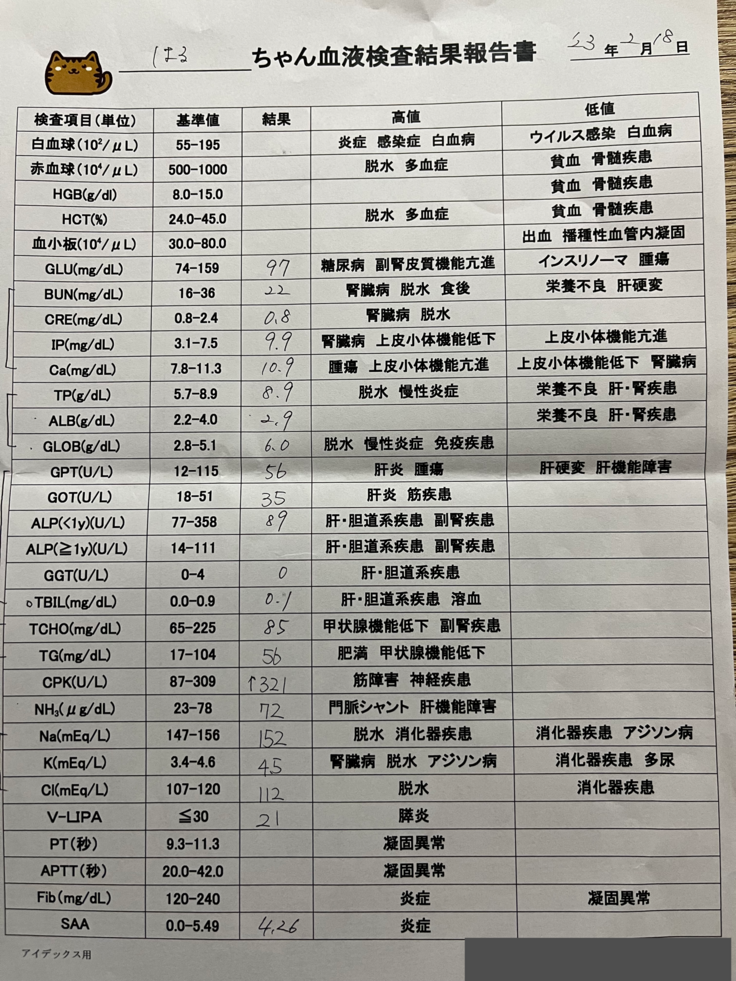 はる ちゃん血液検査結果報告書 23年2月18日
検査項目(単位) 基準値 結果 高値 低値
白血球(10²/μL) 55-195 炎症 感染症 白血病 ウイルス感染 白血病
赤血球(10⁴/μL) 500-1000 脱水 多血症 貧血 骨髄疾患
HGB(g/dl) 8.0-15.0 貧血 骨髄疾患
HCT(%) 24.0-45.0 脱水 多血症 貧血 骨髄疾患
血小板(10⁴/μL) 30.0-80.0 出血 播種性血管内凝固
GLU(mg/dL) 74-159 97 糖尿病 副腎皮質機能亢進 インスリノーマ 腫瘍
BUN(mg/dL) 16-36 22 腎臓病 脱水 食後 栄養不良 肝硬変
CRE(mg/dL) 0.8-2.4 0.8 腎臓病 脱水
IP(mg/dL) 3.1-7.5 9.9 腎臓病 上皮小体機能低下 上皮小体機能亢進
Ca(mg/dL) 7.8-11.3 10.9 腫瘍 上皮小体機能亢進 上皮小体機能低下 腎臓病
TP(g/dL) 5.7-8.9 8.9 脱水 慢性炎症 栄養不良 肝・腎疾患
ALB(g/dL) 2.2-4.0 2.9 栄養不良 肝・腎疾患
GLOB(g/dL) 2.8-5.1 6.0 脱水 慢性炎症 免疫疾患
GPT(U/L) 12-115 56 肝炎 腫瘍 肝硬変 肝機能障害
GOT(U/L) 18-51 35 肝炎 筋疾患
ALP(<1y)(U/L) 77-358 89 肝・胆道系疾患 副腎疾患
ALP(≧1y)(U/L) 14-111 肝・胆道系疾患 副腎疾患
GGT(U/L) 0-4 0 肝・胆道系疾患
TBIL(mg/dL) 0.0-0.9 0.1 肝・胆道系疾患 溶血
TCHO(mg/dL) 65-225 85 甲状腺機能低下 副腎疾患
TG(mg/dL) 17-104 56 肥満 甲状腺機能低下
CPK(U/L) 87-309 ↑321 筋障害 神経疾患
NH₃(μg/dL) 23-78 72 門脈シャント 肝機能障害
Na(mEq/L) 147-156 152 脱水 消化器疾患 消化器疾患 アジソン病
K(mEq/L) 3.4-4.6 4.5 腎臓病 脱水 アジソン病 消化器疾患 多尿
Cl(mEq/L) 107-120 112 脱水 消化器疾患
V-LIPA ≦30 21 膵炎
PT(秒) 9.3-11.3 凝固異常
APTT(秒) 20.0-42.0 凝固異常
Fib(mg/dL) 120-240 炎症 凝固異常
SAA 0.0-5.49 4.26 炎症
アイデックス用